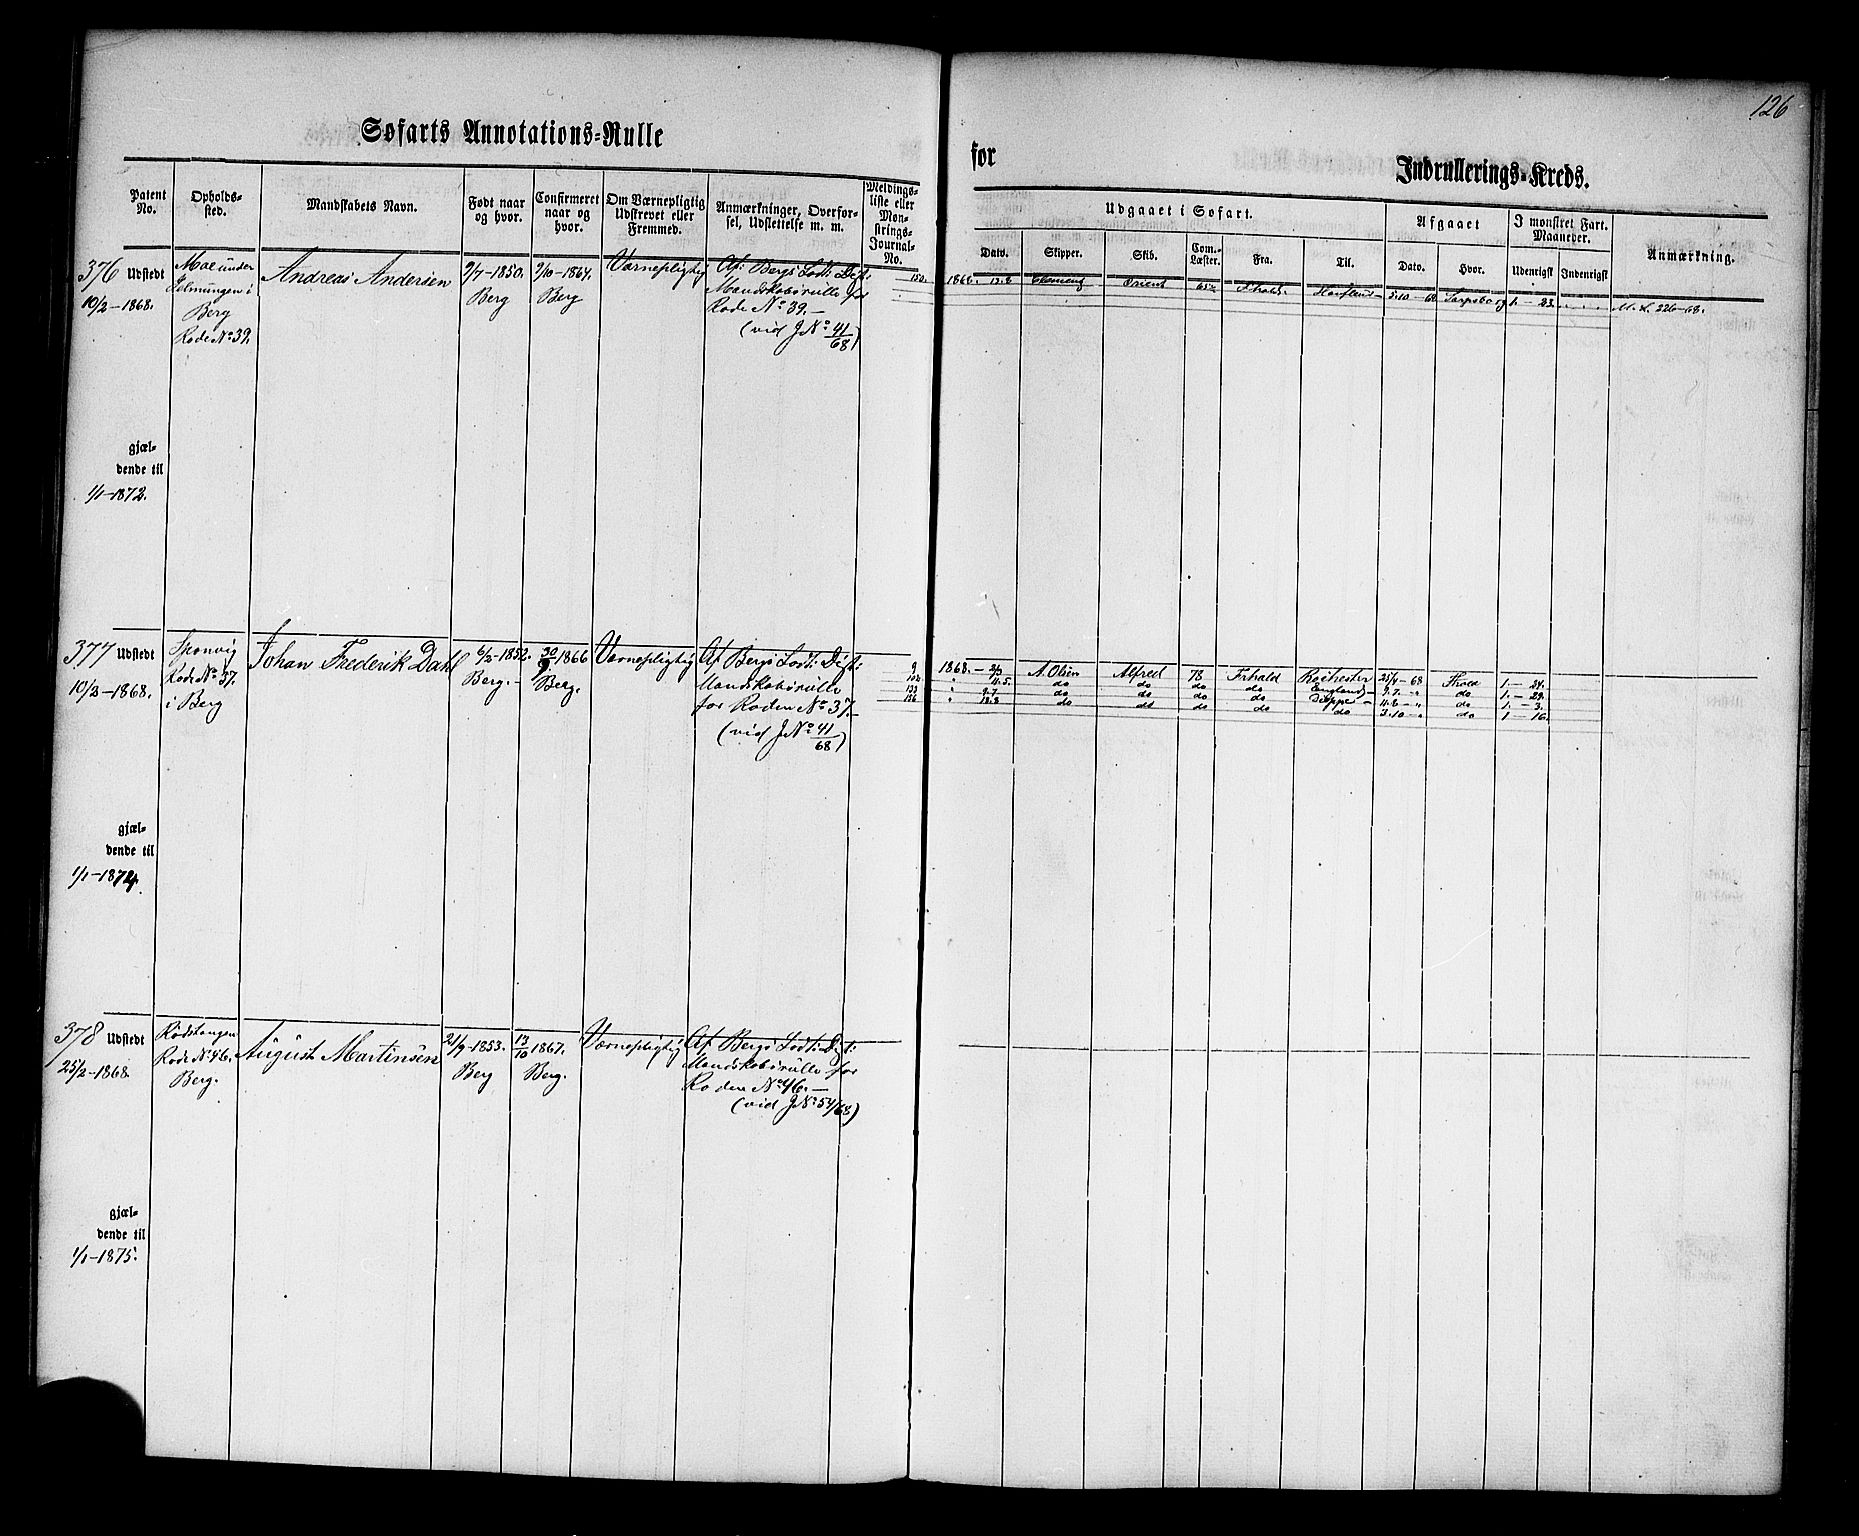 126
Søfarts Annotations-Rulle
for
Indrullerings-Kreds.
Patent No.
Opholds-sted.
Mandskabets Navn.
Født naar og hvor.
Confirmeret naar og hvor.
Om Værnepligtig Udskrevet eller Fremmed.
Anmærkninger, Overførsel, Udslettelse m. m.
Meldings-liste eller Mønstrings-Journal-No.
Udgaaet i Søfart.
Afgaaet
I mønstret Fart. Maaneder.
Anmærkning.
Dato.
Skipper.
Skib.
Com.-Læster.
Fra.
Til.
Dato.
Hvor.
Udenrigst
Indenrigst
376 Udstedt
10/2-1868.
Moe under
i
Berg
Rode No 39.
Andreas Andersen
9/7-1850.
Berg
9/10-1864.
Berg
Værnepligtig
Af Bergs Lodt: Dist:
Mandskabsrulle for
Rode No 39.-
(vid J No 41/68)
150.
1868. 13.8
Orient
5.10-68
Sarpsborg
1-23.
M. L. 226-68.
gjæl-
dende til
1/1-1872.
377 Udstedt
10/2-1868.
Sponvig
Rode No 37.
i Berg
Johan Frederik Dahl
6/2-1852.
Berg.-
30/9 1866
Berg.
Værnepligtig
Af Bergs Lodt: Dist:
Mandskabsrulle
for Roden No 37.-
(vid J No 41/68)
9 1868.- 2/3 A. Olsen Alfred 78 Frhald Rochester 25/4-68 Fhald 1.-24.
" 11.5. do do do do England 9.7.-" do 1.-29.
133 " 9.7. do do do do Dieppe 11.8-" do 1.-3.
136 " 18.8 do do do do do 3.10-" do 1-16.
gjæl-
dende til
1/1-1874.
378 Udstedt
25/2-1868.
Rødstangen
Rode No 46.
Berg.
August Martinsen
21/9-1853.
Berg
13/10 1867.
Berg.
Værnepligtig
Af Bergs Lodt: Dist:
Mandskabsrulle for
Roden No 46.-
(vid J No 54/68)
gjæl-
dende til
1/1-1875.